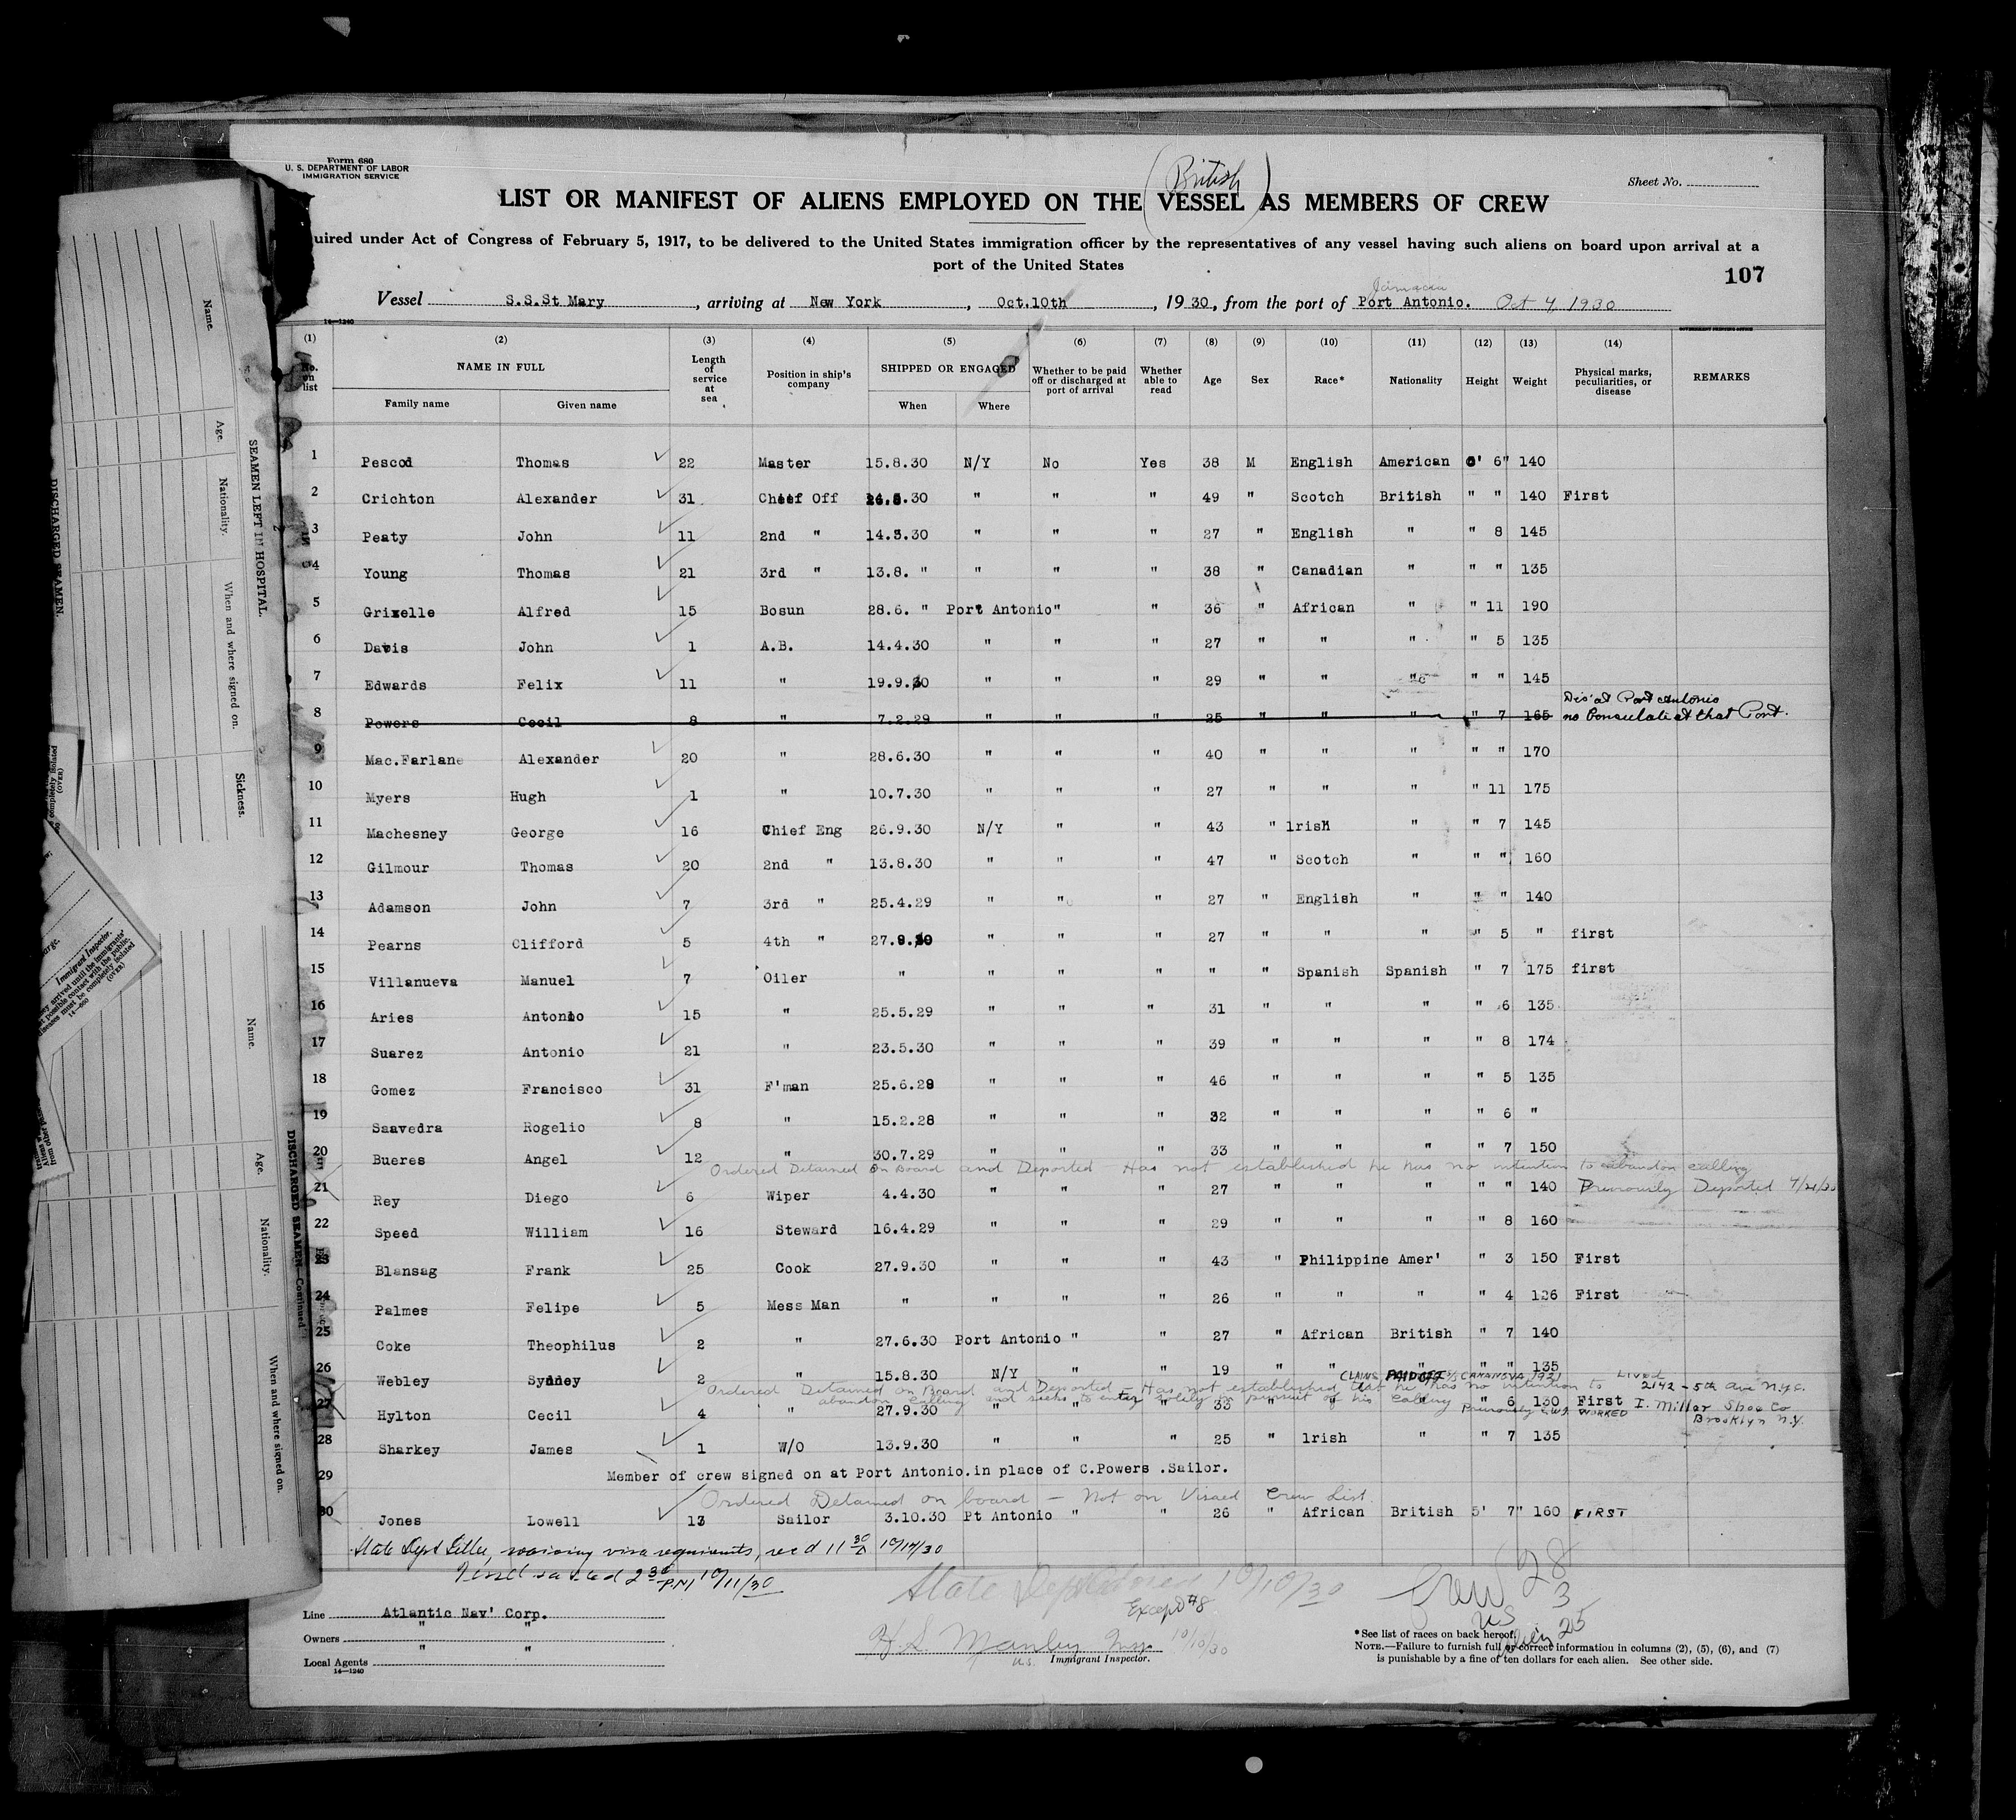 Form 680
U. S. DEPARTMENT OF LABOR
IMMIGRATION SERVICE
Sheet No.
(British)
LIST OR MANIFEST OF ALIENS EMPLOYED ON THE VESSEL AS MEMBERS OF CREW
uired under Act of Congress of February 5, 1917, to be delivered to the United States immigration officer by the representatives of any vessel having such aliens on board upon arrival at a
port of the United States
107
Jamaica
Vessel S.S.St Mary, arriving at New York, Oct.10th, 1930, from the port of Port Antonio. Oct 4, 1930
14—1240
(1) (2) (3) (4) (5) (6) (7) (8) (9) (10) (11) (12) (13) (14)
No. on list NAME IN FULL Length of service at sea Position in ship's company SHIPPED OR ENGAGED Whether to be paid off or discharged at port of arrival Whether able to read Age Sex Race* Nationality Height Weight Physical marks, peculiarities, or disease REMARKS
Family name Given name When Where
1 Pescod Thomas 22 Master 15.8.30 N/Y No Yes 38 M English American 5' 6" 140
2 Crichton Alexander 31 Chief Off .30 " " " 49 " Scotch British " " 140 First
3 Peaty John 11 2nd " 14.8.30 " " " 27 " English " " 8 145
4 Young Thomas 21 3rd " 13.8. " " " " 38 " Canadian " " " 135
5 Grixelle Alfred 15 Bosun 28.6. " Port Antonio " " 36 " African " " 11 190
6 Davis John 1 A.B. 14.4.30 " " " 27 " " " " 5 135
7 Edwards Felix 11 " 19.9.30 " " " 29 " " " " " 145
Dis' at Port Antonio
8 Powers Cecil 8 " 7.2.29 " " " 25 " " " " 7 165 no Consulate at that Port.
9 Mac.Farlane Alexander 20 " 28.6.30 " " " 40 " " " " " 170
10 Myers Hugh 1 " 10.7.30 " " " 27 " " " " 11 175
11 Machesney George 16 Chief Eng 26.9.30 N/Y " " 43 " lrish " " 7 145
12 Gilmour Thomas 20 2nd " 13.8.30 " " " 47 " Scotch " " " 160
13 Adamson John 7 3rd " 25.4.29 " " " 27 " English " " " 140
14 Pearns Clifford 5 4th " 27.9.30 " " " 27 " " " " 5 " first
15 Villanueva Manuel 7 Oiler " " " " " " Spanish Spanish " 7 175 first
16 Aries Antonio 15 " 25.5.29 " " " 31 " " " " 6 135
17 Suarez Antonio 21 " 23.5.30 " " " 39 " " " " 8 174
18 Gomez Francisco 31 F'man 25.6.29 " " " 46 " " " " 5 135
19 Saavedra Rogelio 8 " 15.2.28 " " " 32 " " " " 6 "
20 Bueres Angel 12 " 30.7.29 " " " 33 " " " " 7 150
Ordered Detained On Board and Deported Has not established he has no intention to abandon calling
21 Rey Diego 6 Wiper 4.4.30 " " " 27 " " " " " 140 Previously Deported 4/21/30
22 Speed William 16 Steward 16.4.29 " " " 29 " " " " 8 160
23 Blansag Frank 25 Cook 27.9.30 " " " 43 " Philippine Amer' " 3 150 First
24 Palmes Felipe 5 Mess Man " " " " 26 " " " " 4 126 First
25 Coke Theophilus 2 " 27.6.30 Port Antonio " " 27 " African British " 7 140
26 Webley Sydney 2 " 15.8.30 N/Y " " 19 " " " " " 135
CLAIMS PAID OFF CANANOVA 1921 LIVED
Ordered Detained on Board and Deported — Has not established that he has no intention to 2142 - 5th Ave N.Y.C.
abandon calling and seeks to enter solely in pursuit of his calling
27 Hylton Cecil 4 " 27.9.30 " " " 33 " " " " 6 130 First I. Miller Shoe Co
Previously WORKED Brooklyn N.Y.
28 Sharkey James 1 W/O 13.9.30 " " " 25 " lrish " " 7 135
29 Member of crew signed on at Port Antonio.in place of C.Powers .Sailor.
Ordered Detained on board — Not on Visaed Crew List.
30 Jones Lowell 13 Sailor 3.10.30 Pt Antonio " " 26 " African British 5' 7" 160 FIRST
State Dept Letter, waiving visa requirements, rec'd 11 30 A 10/14/30
Vessel sailed 2 30 P.M 10/11/30
State Dept 10/10/30
Except #8
Crew 28
3
US
Alien 25
Line Atlantic Nav' Corp.
Owners " "
Local Agents " "
14—1240
H.S. Manley Insp. 10/10/30
U.S. Immigrant Inspector.
*See list of races on back hereof.
NOTE.—Failure to furnish full or correct information in columns (2), (5), (6), and (7)
is punishable by a fine of ten dollars for each alien. See other side.
Name.
Age.
Nationality.
When and where signed on.
Sickness.
SEAMEN LEFT IN HOSPITAL.
DISCHARGED SEAMEN.
completely isolated
(OVER)
Immigrant Inspector.
arrived until the immigrants'
possible contact with the public.
diseases must be completely isolated
(OVER)
14—660
Name.
Age.
Nationality.
When and where signed on.
DISCHARGED SEAMEN—Continued.